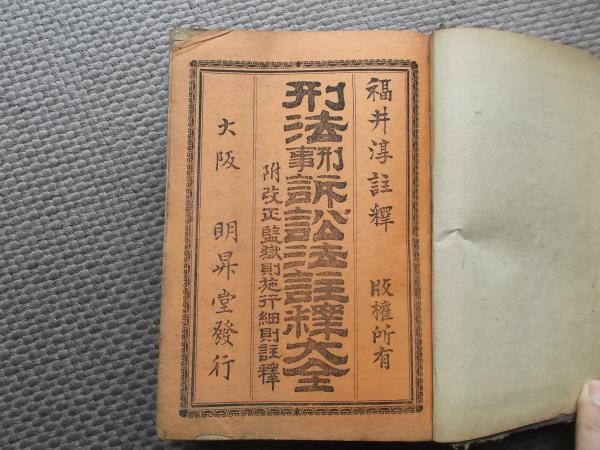 福井淳註釋 版權所有
刑法刑事訴訟法註釋大全
附改正監獄則施行細則註釋
大阪 明昇堂發行